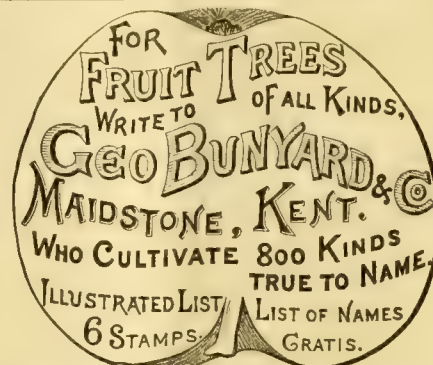 FOR
FRUIT TREES
OF ALL KINDS,
WRITE TO
GEO BUNYARD & Co
MAIDSTONE, KENT.
WHO CULTIVATE 800 KINDS
TRUE TO NAME.
ILLUSTRATED LIST
6 STAMPS.
LIST OF NAMES
GRATIS.